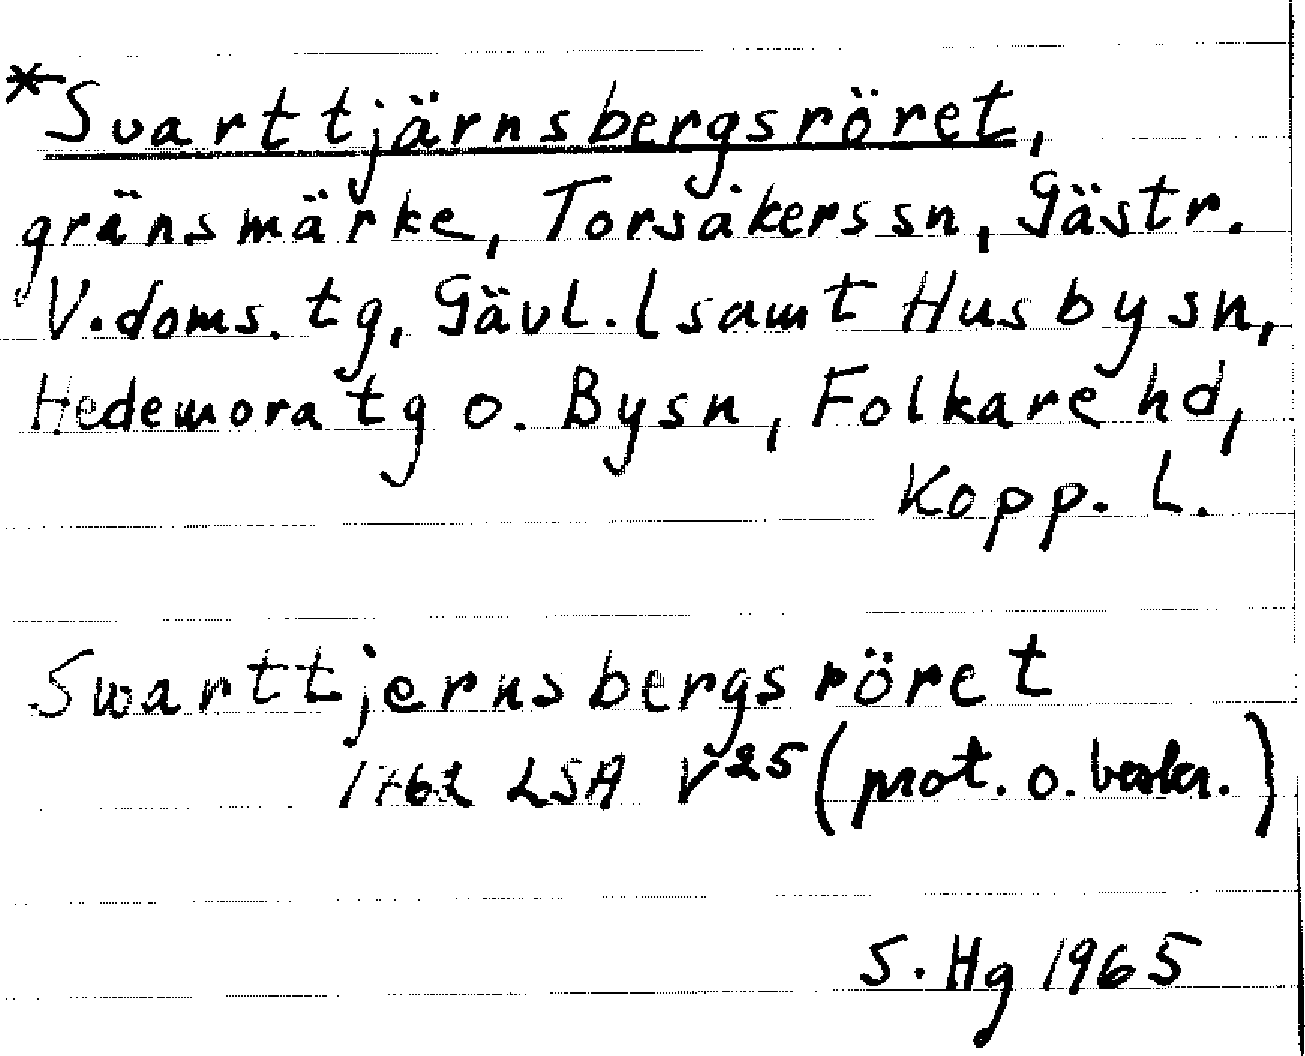 *Svarttjärnsbergsröret,
gränsmärke, Torsåkers sn, Gästr.
V. doms. tg, Gävl. l samt Husby sn,
Hedemora tg o. By sn, Folkare hd,
Kopp. l.
Swarttjernsbergsröret
1762 LSA V25 (prot. o. beskr.)
S. Hg 1965